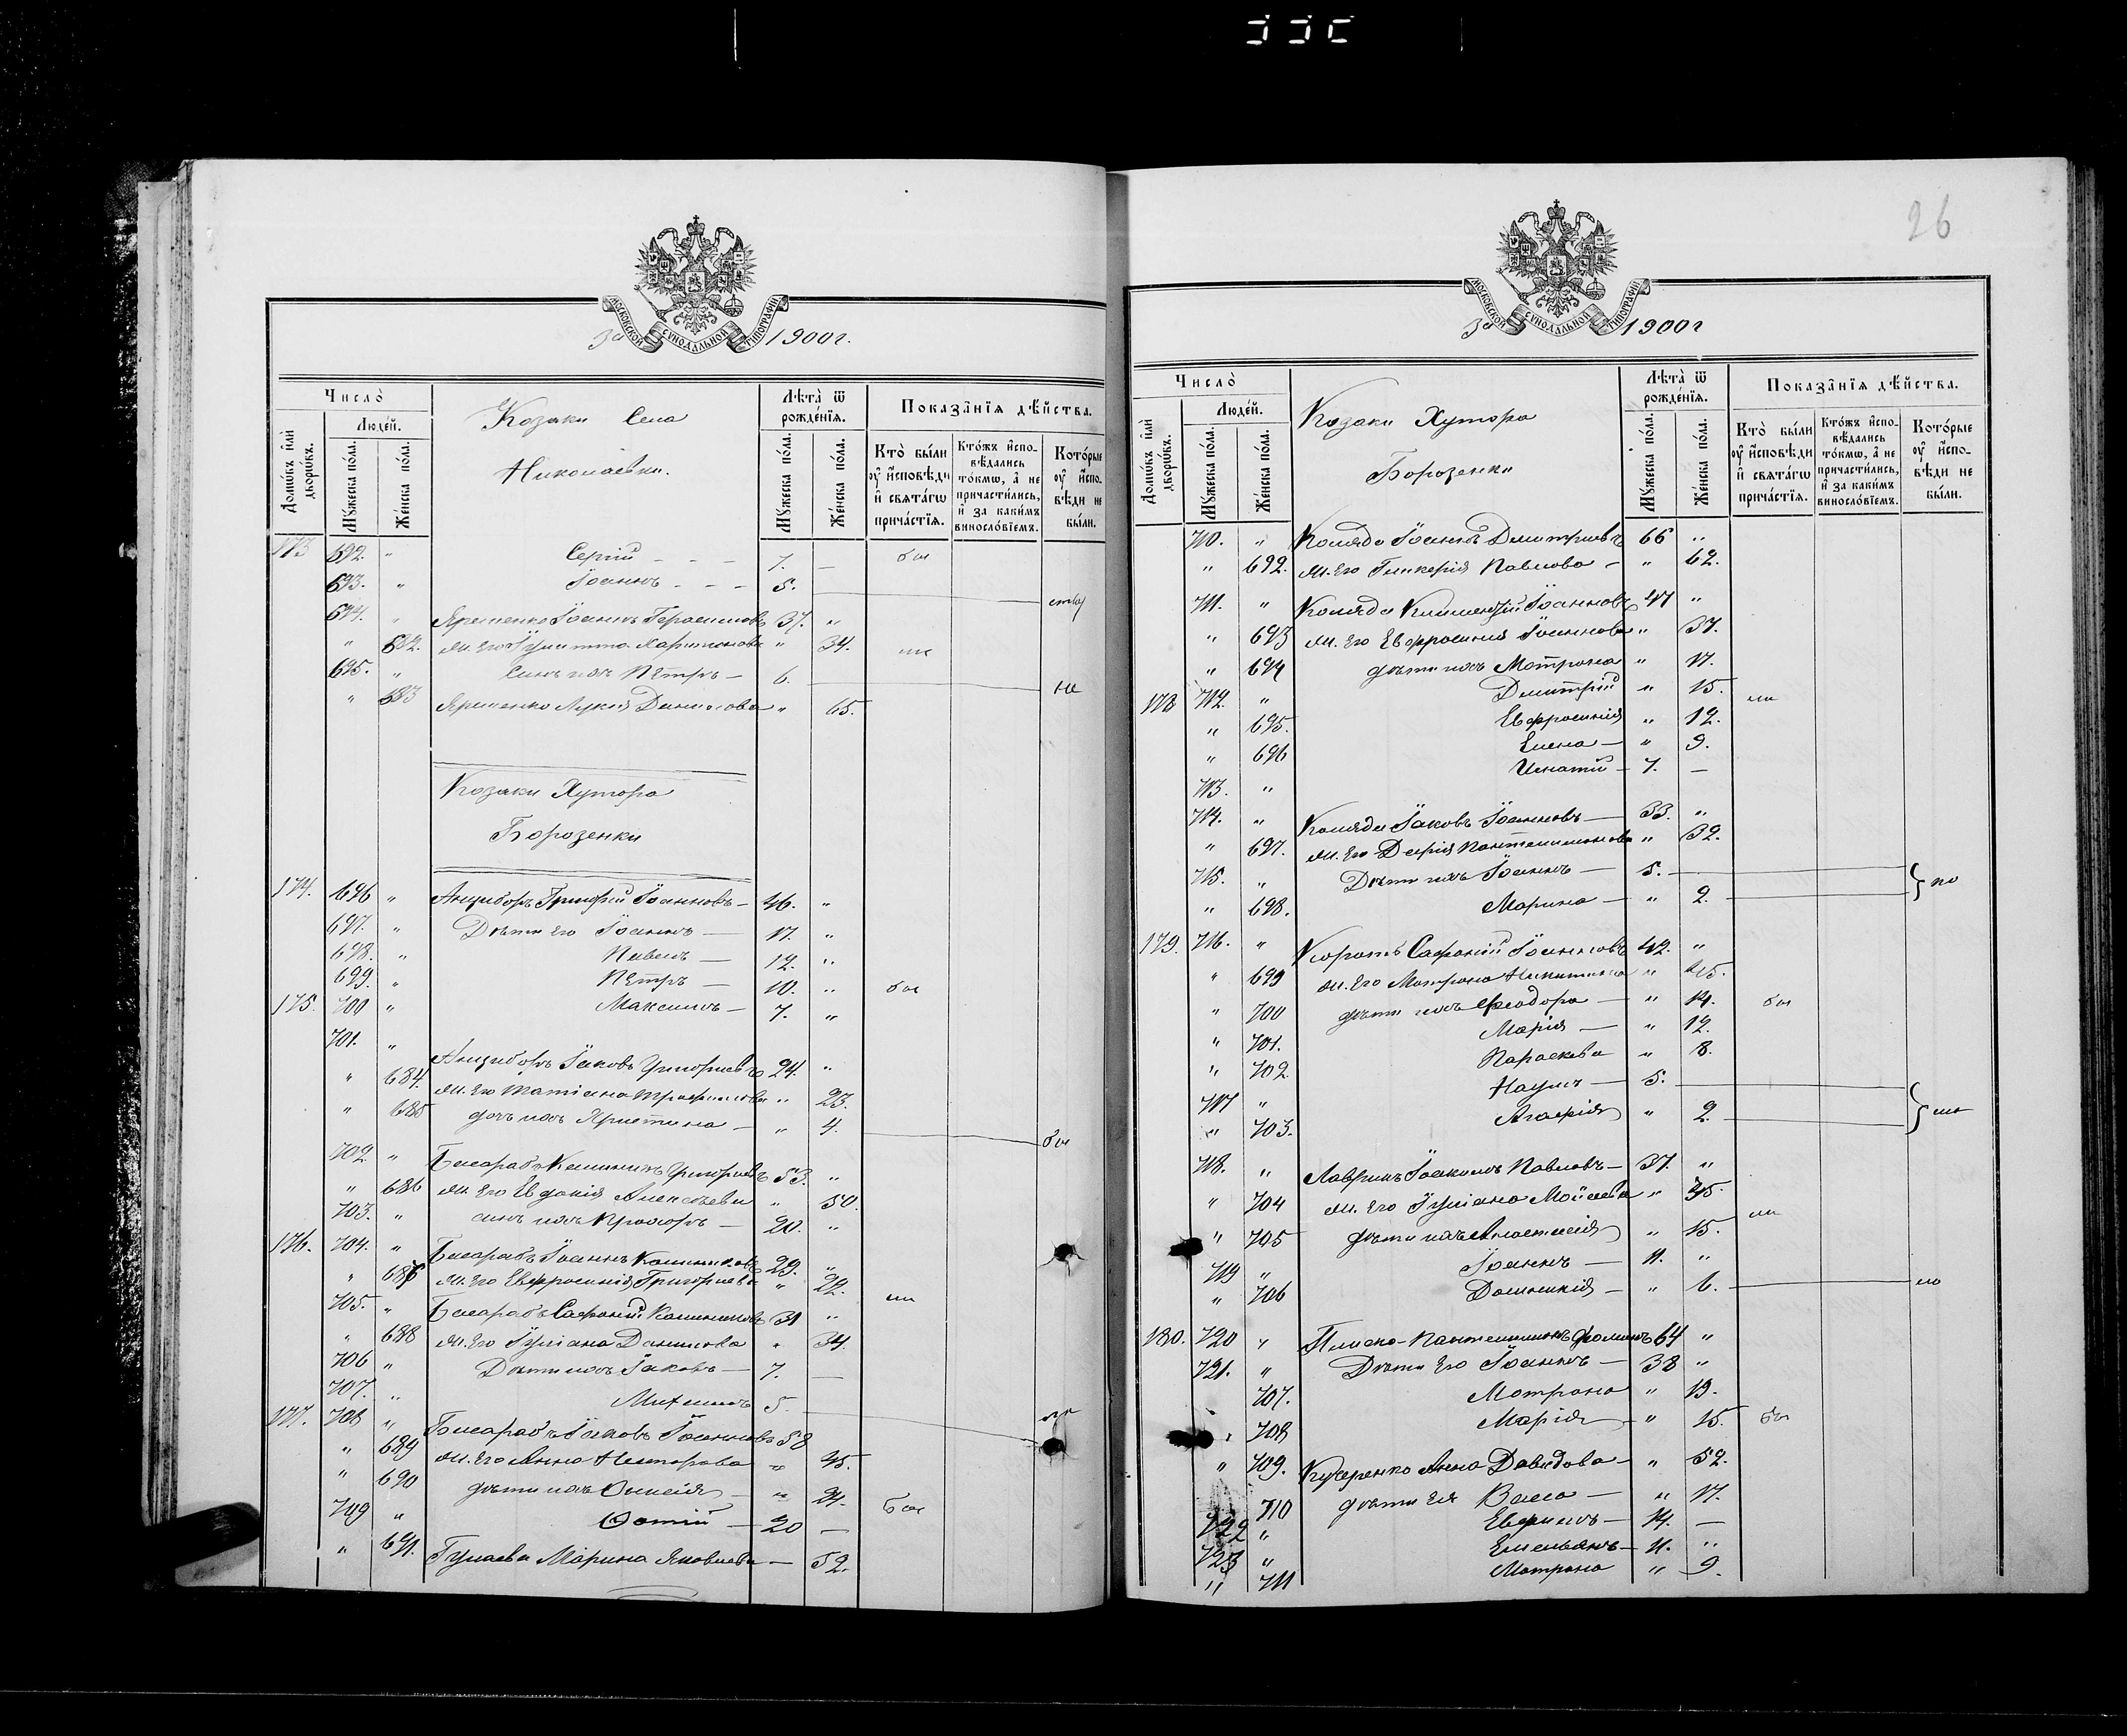 26
МОСКОВСКОЙ СѴНОДАЛЬНОЙ ТИПОГРАФІИ
За 1900 г.
Число̀
Люде́й.
Домѡ́въ и҆лѝ дворѡ́въ.
Мꙋ́жеска по́ла.
Же́нска по́ла.
Козаки Села
Николаевки.
Лѣта̀ ѿ рожде́нїя.
Мꙋ́жеска по́ла.
Же́нска по́ла.
Показа̑нїѧ дѣ́йства.
Кто̀ бы́ли ᲂу҆ и҆́сповѣди и҆ свѧта́гѡ прича́стїѧ.
Кто́жъ и҆спо-вѣ́дались то́кмѡ, а҆ не причасти́лись, и҆ за каки́мъ винослóвїемъ.
Кото́рые ᲂу҆ и҆́спо-вѣди не бы́ли.
173 692. " Сергій - - - 7. — бы
693. " Іоаннъ - - - 5.
694. " Яременко Іоаннъ Герасимовъ 37. "
" 682. ж. его Іулитта " 34.
695. " сынъ ихъ Петръ — 6. не
" 683 Яременко Лукія Данилова " 65.
Козаки Хутора
Борозенки
174. 696 " Анцыборъ Григорій Іоанновъ — 46. "
697. " Дѣти его Іоаннъ — 17. "
698. " Павелъ — 12. "
699. " Петръ — 10. " бы
175. 700 " Максимъ — 7. "
701. " Анцыборъ Іаковъ Григорьевъ 24. "
" 684. ж. его Татіана Трофимова " 23.
" 685 дочь ихъ Христина — " 4. бы
702. " Бисарабъ Каллиникъ Григорьевъ 53. "
" 686 ж. его Евдокія Алексѣева " 50.
703. " сынъ ихъ Прохоръ — 20. "
176. 704. " Бисарабъ Іоаннъ Каллиниковъ 29. "
" 687 ж. его Евфросинія Григорьева " 22.
705. " Бисарабъ Сафоній Каллиниковъ 31 " ли
" 688 ж. его Іуліана Данилова " 34.
706 " Дѣти ихъ Іаковъ — 7. —
707. " Михаилъ 5.
177. 708 " Бисарабъ Іаковъ Іоанновъ 58
" 689 ж. его Анна Несторова " 45.
" 690 дѣти ихъ Анисія — " 24. бы
709 " Фотій — 20 —
" 691. Гулаева Марина Яковлева — 52.
МОСКОВСКОЙ СѴНОДАЛЬНОЙ ТИПОГРАФІИ
За 1900 г
Число̀
Люде́й.
Домѡ́въ и҆лѝ дворѡ́въ.
Мꙋ́жеска по́ла.
Же́нска по́ла.
Козаки Хутора
Борозенки
Лѣта̀ ѿ рожде́нїя.
Мꙋ́жеска по́ла.
Же́нска по́ла.
Показа̑нїѧ дѣ́йства.
Кто̀ бы́ли ᲂу҆ и҆́сповѣди и҆ свѧта́гѡ прича́стїѧ.
Кто́жъ и҆спо-вѣ́дались то́кмѡ, а҆ не причасти́лись, и҆ за каки́мъ винослóвїемъ.
Кото́рые ᲂу҆ и҆́спо-вѣди не бы́ли.
710. " Коляда Іоаннъ Димитріевъ 66 "
" 692. ж. его Гликерія Павлова — " 62.
711. " Коляда Климентій Іоанновъ 47 "
" 693 ж. его Евфросинія Іоаннова " 37.
" 694 дѣти ихъ Мотрона " 17.
178 712. " Димитрій " 15. ли
" 695. Евфросинія " 12.
" 696 Елена — " 9.
713. " Игнатій — 7. —
714. " Коляда Іаковъ Іоанновъ — 33. "
" 697. ж. его Дарія Пантелеимонова " 32.
715. " Дѣти ихъ Іоаннъ — 5. —
" 698. Марина — " 2. по
179. 716. " Коротъ Сафоній Іоанновъ 42. "
" 699 ж. его Мотрона Никитина " 45.
" 700 дѣти ихъ Феодора — " 14. бы
" 701. Марія — " 12.
" 702 Параскева " 8.
717 " Наумъ — 5.
" 703. Агафія " 2.
718. " Лавринъ Іоакимъ Павловъ — 37. "
" 704 ж. его Іуліана Моисеева " 35.
" 705 дѣти ихъ Анастасія " 15. ли
719 " Іоаннъ — 11. "
" 706 Домникія — " 6.
180. 720 " Пантелеимонъ Фоминъ 64 "
721. " Дѣти его Іоаннъ — 38 "
707. Мотрона " 19.
" 708 Марія — " 15. бы
" 709. Кучеренко Анна Давидова — " 52.
710 дѣти ея Васса — " 17.
722 " Евфимъ — 14. —
723 " Емельянъ — 11. "
" 711 Мотрона " 9.